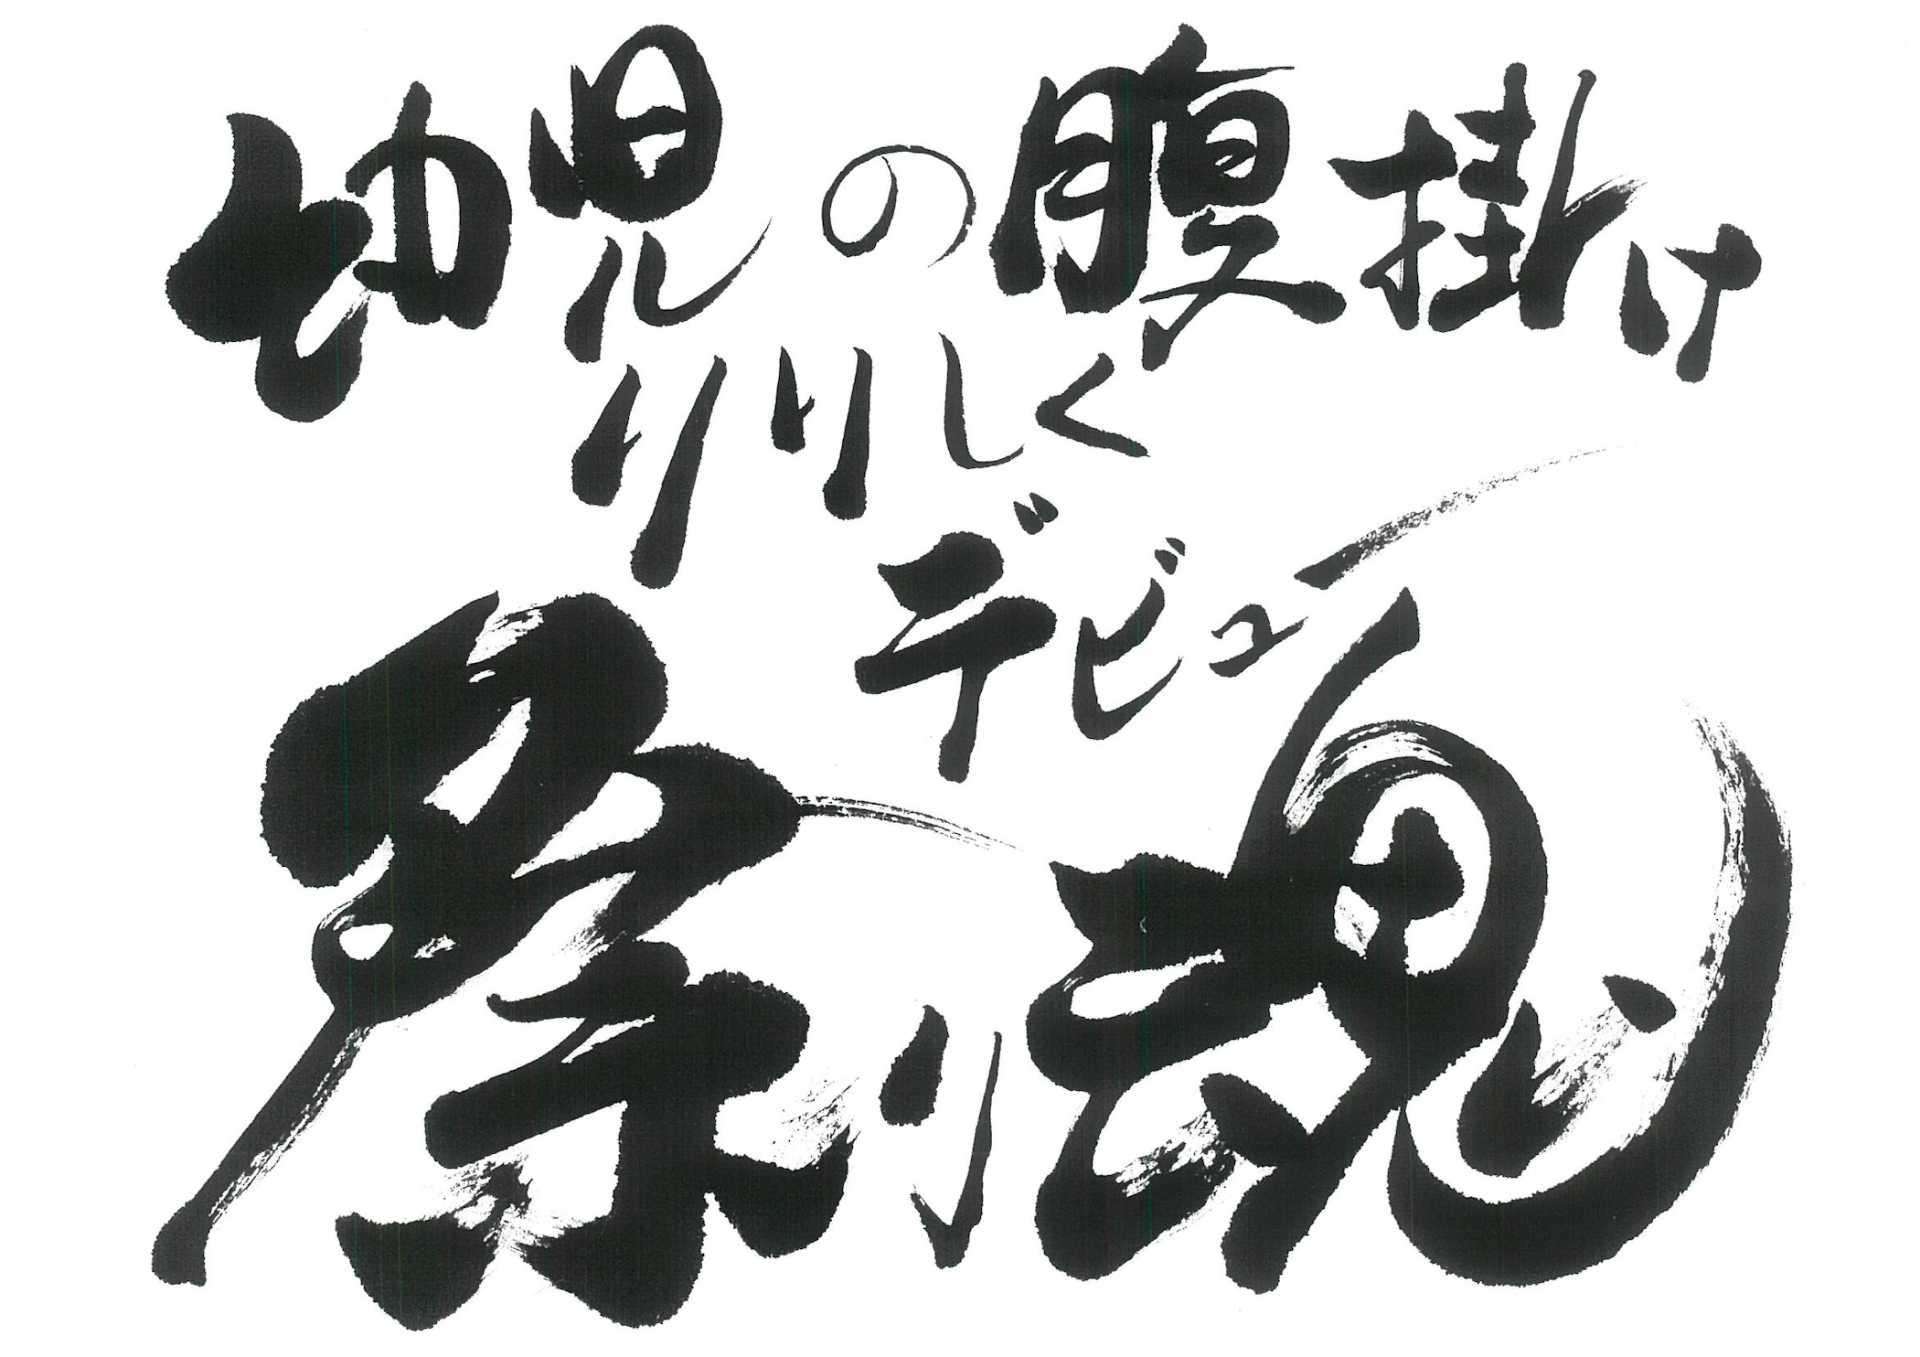 幼児の腹掛け
りりしく
デビュー
祭り魂